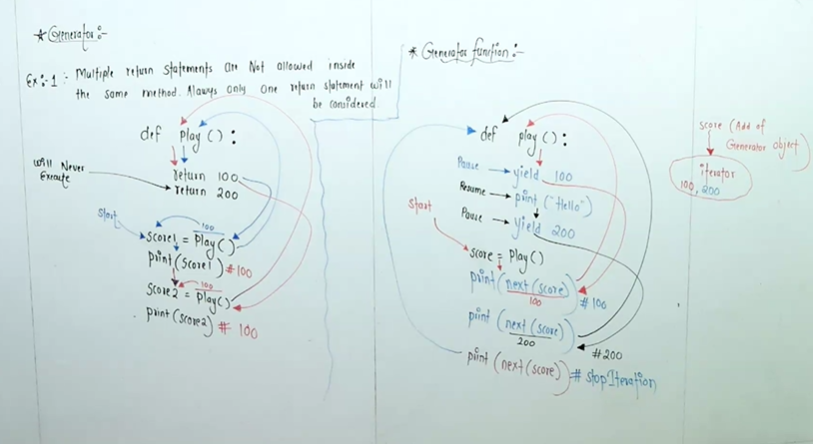 * Generator:-
Ex:-1: Multiple return statements are Not allowed inside
the same method. Always only one return statement will
be considered.
def play():
return 100
return 200
Will Never
Execute
Start
100
score1 = Play()
print(score1) #100
100
score2 = Play()
print(score2) # 100
* Generator function:-
def play():
Pause yield 100
Resume print ("Hello")
Pause yield 200
Start
score = Play()
print (next(score)) #100
100
print (next(score))
200
#200
print (next(score)) # StopIteration
score (Add of
Generator object)
iterator
100, 200